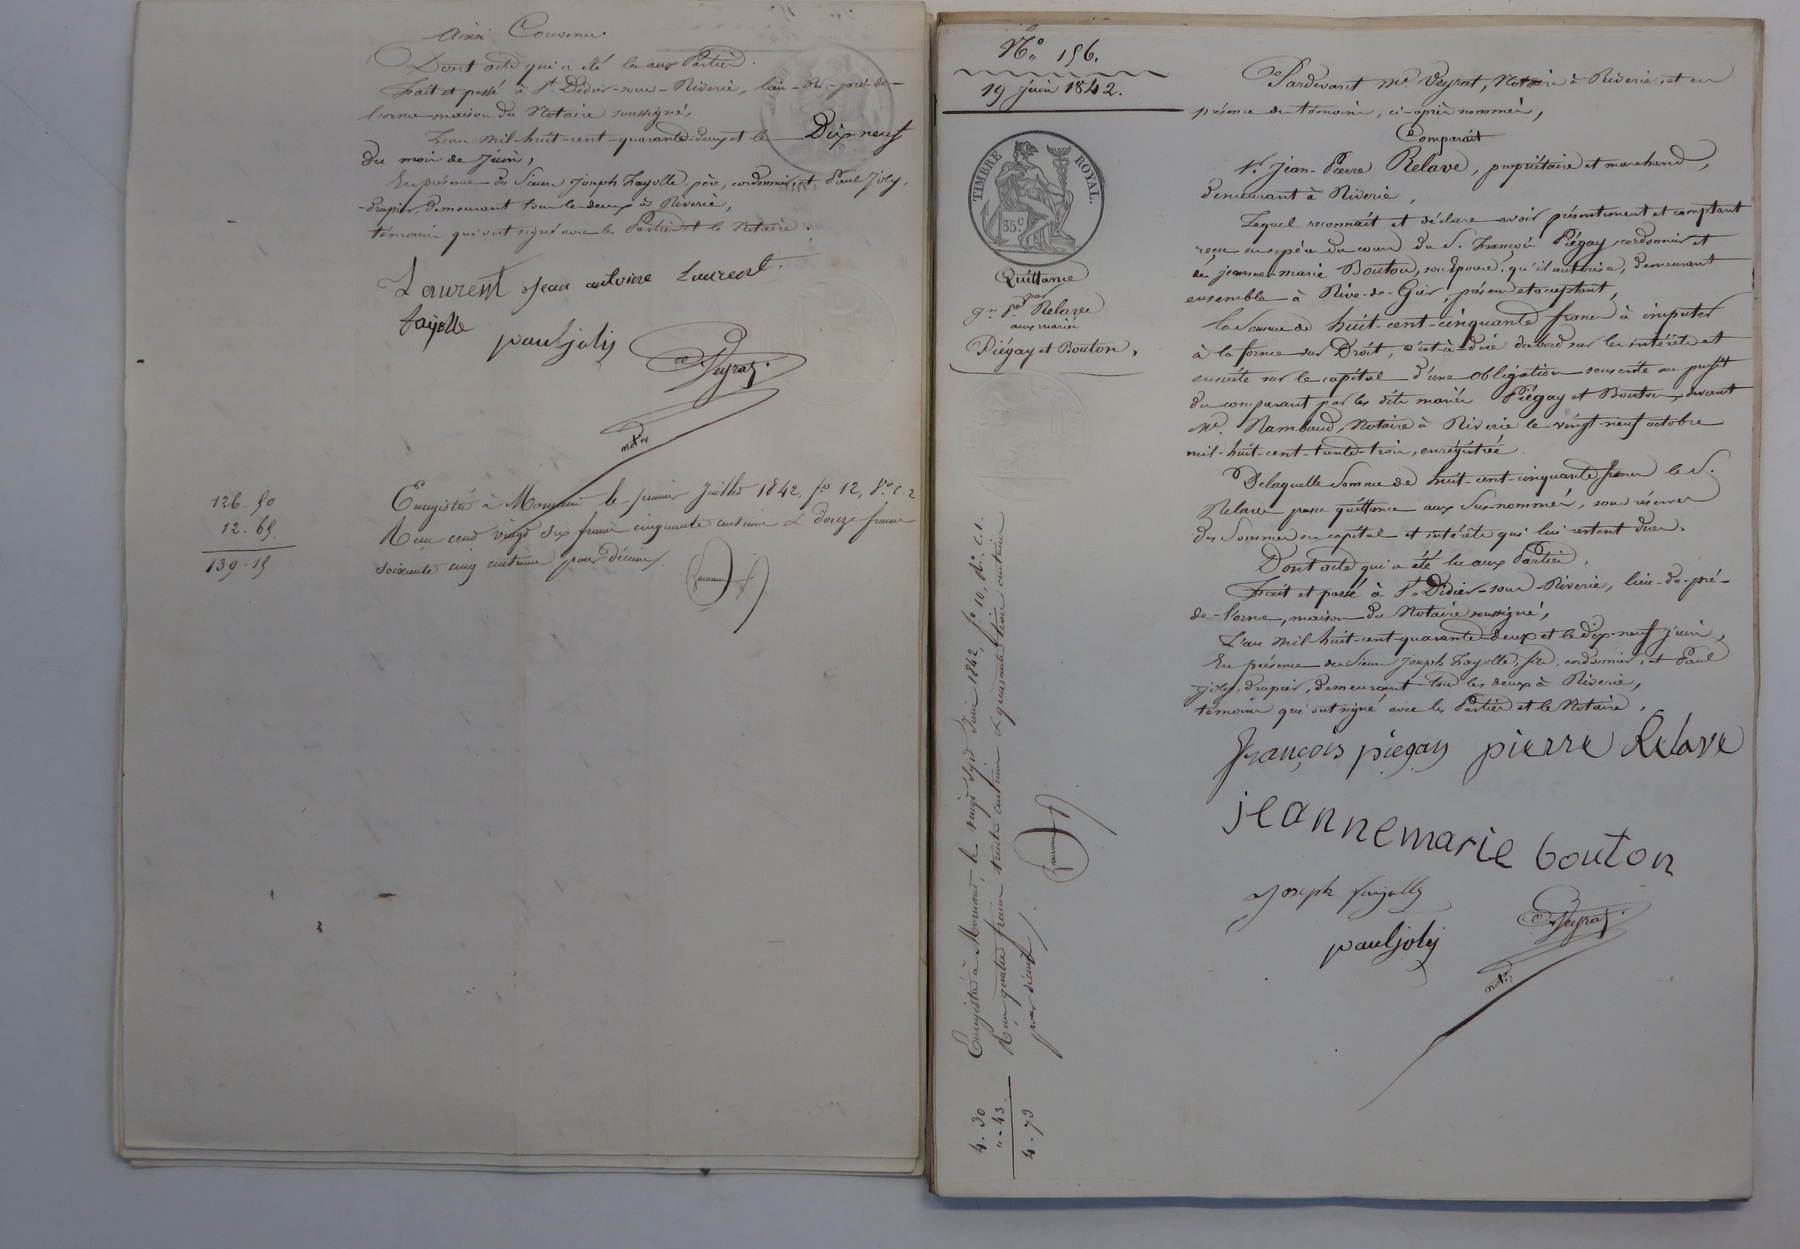 Ainsi Convenu.
Dont acte qui a été lu aux Parties.
Fait et passé à St. Didier-sous-Riverie, lieu-du-pré-de-
lorme maison du Notaire soussigné,
L'an mil-huit-cent-quarante-deux et le Dix neuf
du mois de Juin,
En présence des Sieurs Joseph Fayolle, père, cordonnier, et Paul Joly,
drapier, demeurant tous les deux à Riverie,
témoins qui ont signé avec les Parties et le Notaire.
Laurent Jean antoine Laurent.
fayolle
paul joly
Veyrat
notre
126. 50
12. 65.
139. 15
Enregistré à Mornant le premier Juillet 1842, fo 12, Vo c. 2
Reçu cent vingt six francs cinquante centimes & douze francs
soixante cinq centimes pour décime.
No. 156.
19 juin 1842.
TIMBRE ROYAL.
35 c
Quittance
par
Jn Pre Relave
aux mariés
Piégay et Bouton.
Enregistré à Mornant, le vingt sept Juin 1842, fo 10, Ro. c. 1.
Reçu quatre francs trente centimes & quarante trois centimes
pour décime.
4. 30
" - 43
4. 73
Pardevant Me. Veyrat, Notaire à Riverie, et en
présence des témoins, ci-après nommés,
Comparait
Sr. Jean-Pierre Relave, propriétaire et marchand,
demeurant à Riverie,
Lequel reconnait et déclare avoir présentement et comptant
reçu en espèces du cours du S. François Piégay, cordonnier et
de jeanne-marie Bouton, son épouse, qu'il autorise, demeurant
ensemble à Rive-de-Gier, présens et acceptant,
la Somme de huit-cent-cinquante francs à imputer
à la forme du Droit, c'est-à-dire d'abord sur les intérêts et
ensuite sur le capital d'une obligation souscrite au profit
du comparant par les dits mariés Piégay et Bouton, devant
Me. Rambaud, Notaire à Riverie le vingt-neuf octobre
mil-huit-cent-trente-trois, enregistrée.
De laquelle Somme de huit-cent-cinquante francs le S.
Relave passe quittance aux Sus-nommés, sous réserve
des Sommes en capital et intérêts qui lui restent dues.
Dont acte qui a été lu aux Parties.
Fait et passé à St. Didier-sous-Riverie, lieu-du-pré-
de-lorme, maison du Notaire soussigné,
L'an mil-huit-cent-quarante-deux et le dix-neuf juin,
En présence des Sieurs Joseph Fayolle, fils, cordonnier, et Paul
Joly, drapier, demeurant tous les deux à Riverie,
témoins qui ont signé avec les Parties et le Notaire.
françois piégay pierre Relave
jeanne marie bouton
Joseph fayolle
paul joly
Veyrat
notre